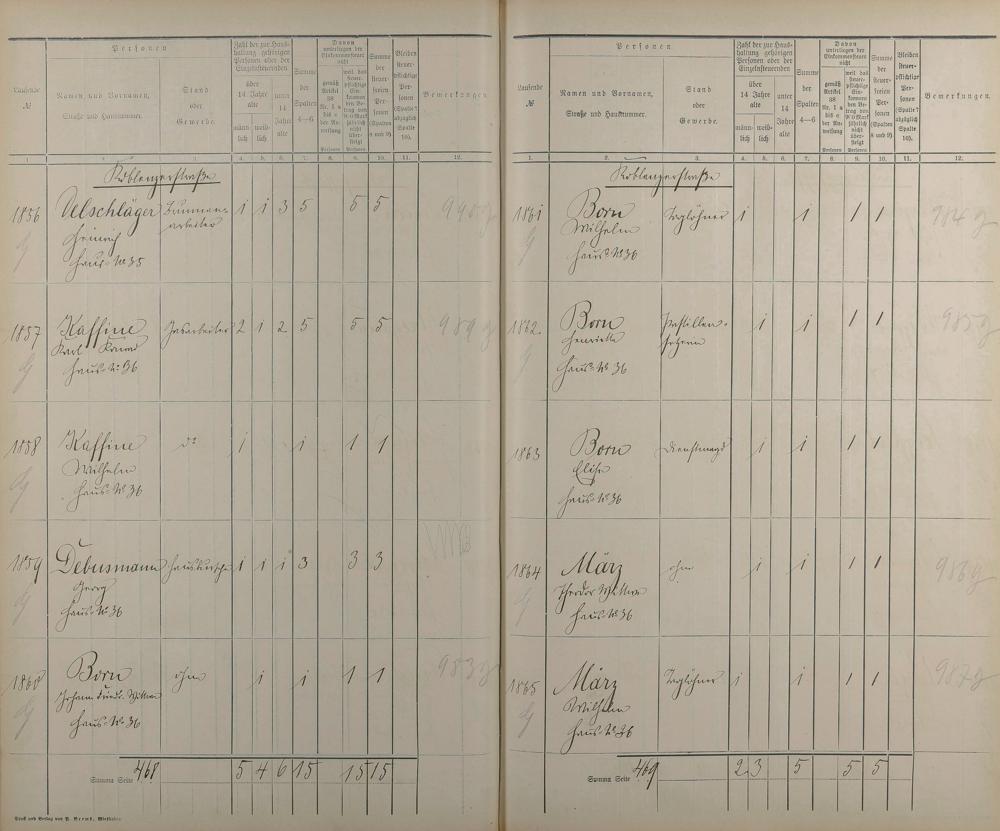 Laufende
№
Personen
Namen und Vornamen,
Straße und Hausnummer.
Stand
oder
Gewerbe.
Zahl der zur Haus-
haltung gehörigen
Personen oder der
Einzelnsteuernden
über
14 Jahre
alte
männ-
lich
weib-
lich
unter
14
Jahre
alte
Summe
der
Spalten
4—6
Davon
unterliegen der
Einkommensteuer
nicht
gemäß
Artikel
38
Nr. 1 a
bis e
der An-
weisung
Personen
weil das
steuer-
pflichtige
Ein-
kommen
den Be-
trag von
900 Mark
jährlich
nicht
über-
steigt
Personen
Summe
der
steuer-
freien
Per-
sonen
(Spalten
8 und 9).
Bleiben
steuer-
pflichtige
Per-
sonen
(Spalte 7
abzüglich
Spalte
10).
Bemerkungen.
1. 2. 3. 4. 5. 6. 7. 8. 9. 10. 11. 12.
Koblenzerstraße
1856 Uelschläger 1 1 3 5 5 5 990 g
arbeiter
Heinrich
Haus-№ 35
1857 Kaffine Gasarbeiter 2 1 2 5 5 5 989 g
Karl Konrad
Haus-№ 36
1858 Kaffine do 1 1 1 1
Wilhelm
Haus-№ 36
1859 Debusmann Hausbursche 1 1 1 3 3 3
Georg
Haus-№ 36
1860 Born ohne 1 1 1 1 983 g
Johann Friedr. Wittwe
Haus-№ 36
Summa Seite 468 5 4 6 15 15 15
Druck und Verlag von P. Plaum, Wiesbaden
Laufende
№
Personen
Namen und Vornamen,
Straße und Hausnummer.
Stand
oder
Gewerbe.
Zahl der zur Haus-
haltung gehörigen
Personen oder der
Einzelnsteuernden
über
14 Jahre
alte
männ-
lich
weib-
lich
unter
14
Jahre
alte
Summe
der
Spalten
4—6
Davon
unterliegen der
Einkommensteuer
nicht
gemäß
Artikel
38
Nr. 1 a
bis e
der An-
weisung
Personen
weil das
steuer-
pflichtige
Ein-
kommen
den Be-
trag von
900 Mark
jährlich
nicht
über-
steigt
Personen
Summe
der
steuer-
freien
Per-
sonen
(Spalten
8 und 9).
Bleiben
steuer-
pflichtige
Per-
sonen
(Spalte 7
abzüglich
Spalte
10).
Bemerkungen.
1. 2. 3. 4. 5. 6. 7. 8. 9. 10. 11. 12.
Koblenzerstraße
1861 Born Taglöhner 1 1 1 1 984 g
Wilhelm
Haus-№ 36
1862 Born 1 1 1 1 985 g
Henriette
Haus-№ 36
1863 Born Dienstmagd 1 1 1 1
Elise
Haus-№ 36
1864 März ohne 1 1 1 1 986 g
Theodor Wittwe
Haus-№ 36
1865 März Taglöhner 1 1 1 1 987 g
Wilhelm
Haus-№ 36
Summa Seite 469 2 3 5 5 5